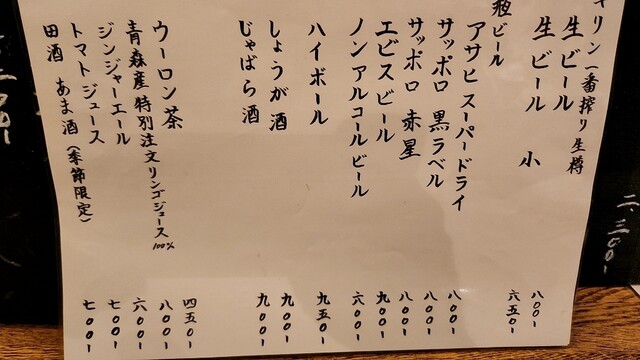 二、三〇〇ー
キリン一番搾り生樽
生ビール 八〇〇ー
生ビール 小 六五〇ー
瓶ビール
アサヒスーパードライ 八〇〇ー
サッポロ 黒ラベル 八〇〇ー
サッポロ 赤星 八〇〇ー
エビスビール 九〇〇ー
ノンアルコールビール 六〇〇ー
ハイボール 九五〇ー
しょうが酒 九〇〇ー
じゃばら酒 九〇〇ー
ウーロン茶 四五〇ー
青森産特別注文リンゴジュース100% 八〇〇ー
ジンジャーエール 六〇〇ー
トマトジュース 七〇〇ー
田酒 あま酒(季節限定) 七〇〇ー